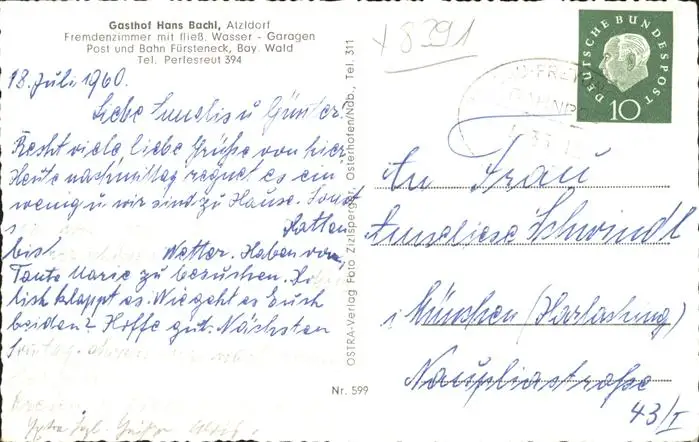 Gasthof Hans Bachl, Atzldorf
Fremdenzimmer mit fließ. Wasser - Garagen
Post und Bahn Fürsteneck, Bay. Wald
Tel. Perlesreut 394
18. Juli 1960.
Liebe Annelis u Günter.
Recht viele liebe Grüße von hier.
Heute nachmittag regnet es ein
wenig u wir sind zu Hause. Sonst
Hatten
bist Wetter. Haben vor,
Tante Marie zu besuchen.
klappt es. Wie geht es Euch
beiden? Hoffe gut. Nächsten
Sonntag
OSTRA-Verlag Foto Zizlsperger, Osterhofen/Ndb., Tel. 311
Nr. 599
x 8391
DEUTSCHE BUNDESPOST
10
An Frau
Anneliese Schwindl
i München (Harlaching)
Naupliastraße
43/I